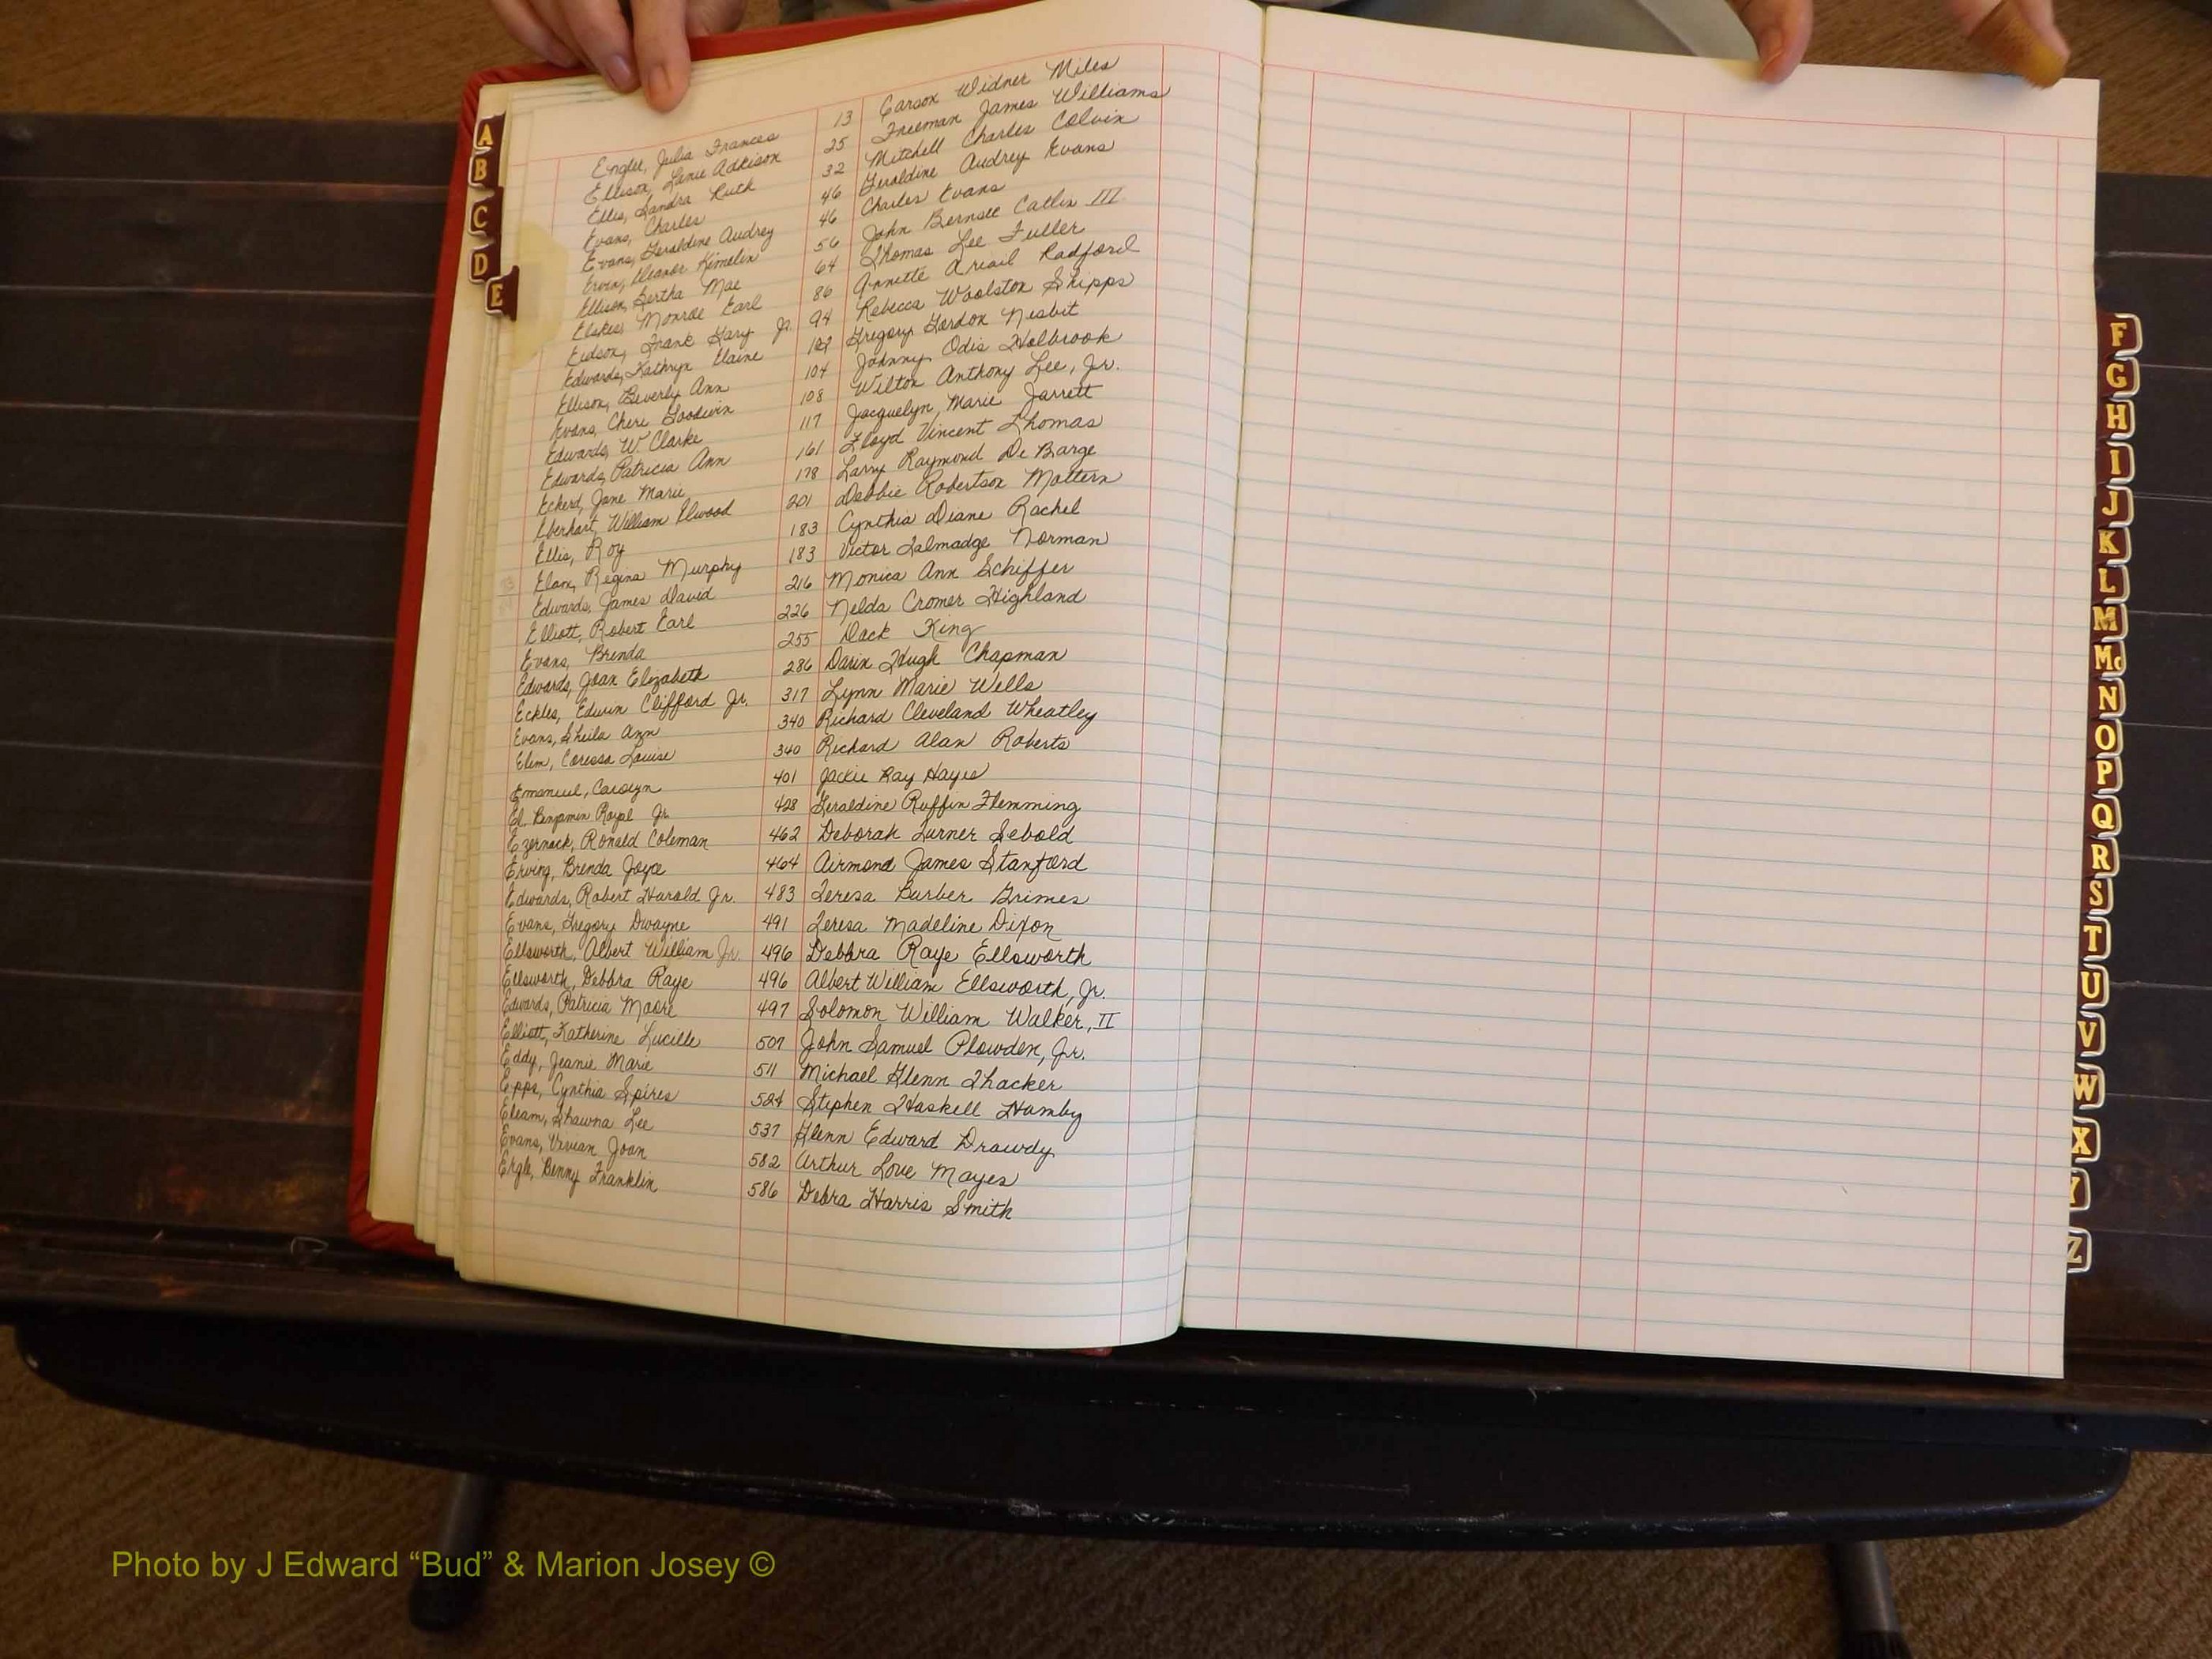 Engler, Julia Frances 13 Carson Widner Miles
Ellison, Lanie Adkison 25 Freeman James Williams
Ellis, Sandra Ruth 32 Mitchell Charles Colvin
Evans, Charles 46 Geraldine Audrey Evans
Evans, Geraldine Audrey 46 Charles Evans
Ervin, Eleanor 56 John Catlin III
Ellison, Bertha Mae 64 Thomas Lee Fuller
Monroe Earl 86 Annette Ariail Radford
Eidson, Frank Gary Jr. 94 Rebecca Woolston Shipps
Edwards, Kathryn Elaine 102 Gregory Gordon Nesbit
Ellison, Beverly Ann 104 Johnny Odis Holbrook
Evans, Cheri Goodwin 108 Wilton Anthony Lee, Jr.
Edwards, W. Clarke 117 Jacquelyn Marie Jarrett
Edwards, Patricia Ann 161 Floyd Vincent Thomas
Eckerd, Jane Marie 178 Larry Raymond De Barge
Eberhart, William Elwood 201 Debbie Robertson Mattern
Ellis, Roy 183 Cynthia Diane Rachel
Elam, Regina Murphy 183 Victor Talmadge Norman
Edwards, James David 216 Monica Ann Schiffer
Elliott, Robert Earl 226 Nelda Cromer Highland
Evans, Brenda 255 Dack King
Edwards, Joan Elizabeth 286 Darin Hugh Chapman
Eckles, Edwin Clifford Jr. 317 Lynn Marie Wells
Evans, Sheila Ann 340 Richard Cleveland Wheatley
Elem, Caressa Louise 340 Richard Alan Roberts
Emanuel, Carolyn 401 Jackie Ray Hayes
El. Benjamin Royal Jr. 428 Geraldine Ruffin Flemming
Ezernack, Ronald Coleman 462 Deborah Turner Sebold
Erving, Brenda Joyce 464 Airmond James Stanford
Edwards, Robert Harold Jr. 483 Teresa Barber Grimes
Evans, Gregory Dwayne 491 Teresa Madeline Dixon
Ellsworth, Albert William Jr. 496 Debbra Raye Ellsworth
Ellsworth, Debbra Raye 496 Albert William Ellsworth, Jr.
Edwards, Patricia Moore 497 Solomon William Walker, II
Elliott, Katherine Lucille 507 John Samuel Plowden, Jr.
Eddy, Jeanie Marie 511 Michael Glenn Thacker
Epps, Cynthia Spires 524 Stephen Haskell Hamby
Eleam, Shawna Lee 537 Glenn Edward Drawdy
Evans, Vivian Joan 582 Arthur Love Mayes
Ergle, Benny Franklin 586 Debra Harris Smith
A
B
C
D
E
F
G
H
I
J
K
L
M
Mc
N
O
P
Q
R
S
T
U
V
W
X
Y
Z
Photo by J Edward “Bud” & Marion Josey ©